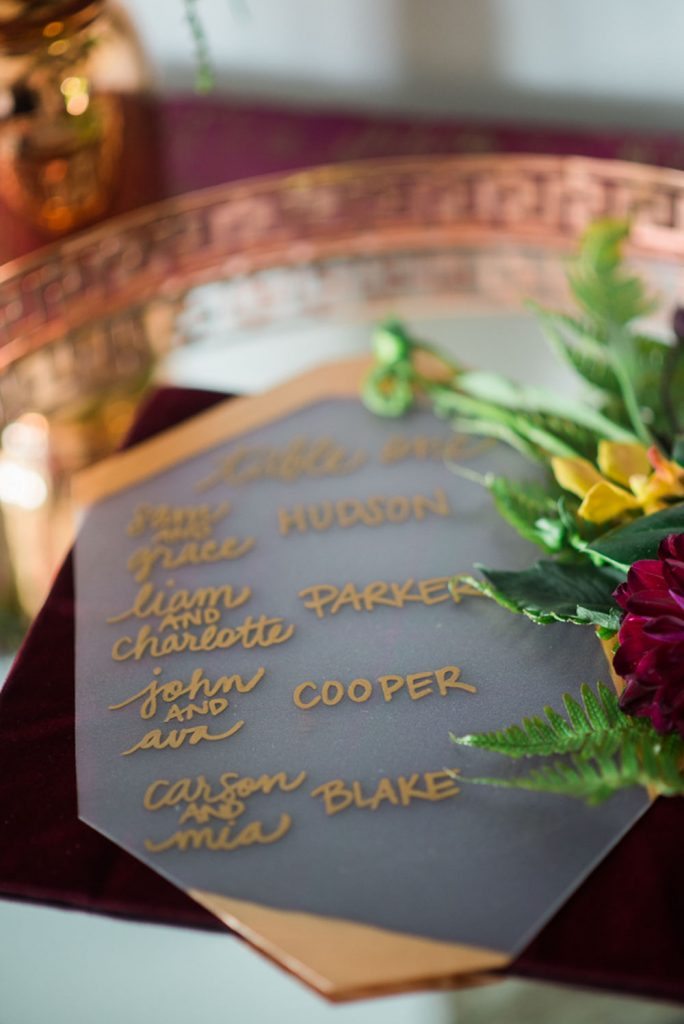 table one
AND HUDSON
grace
liam
AND PARKER
charlotte
john
AND COOPER
ava
carson
AND BLAKE
mia